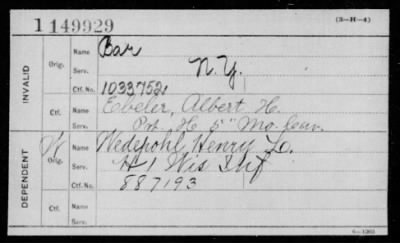 1149929
(3-H-4)
INVALID
Orig.
Name Bar
Serv. N.Y.
Ctf. No. 1033752
Ctf.
Name Ebeler, Albert H.
Serv. Pvt. H 5" Mo. Cav.
DEPENDENT
W
Orig.
Name Wedepohl, Henry L.
Serv. H 1 Wis Inf
Ctf. No. 887193
Ctf.
Name
Serv.